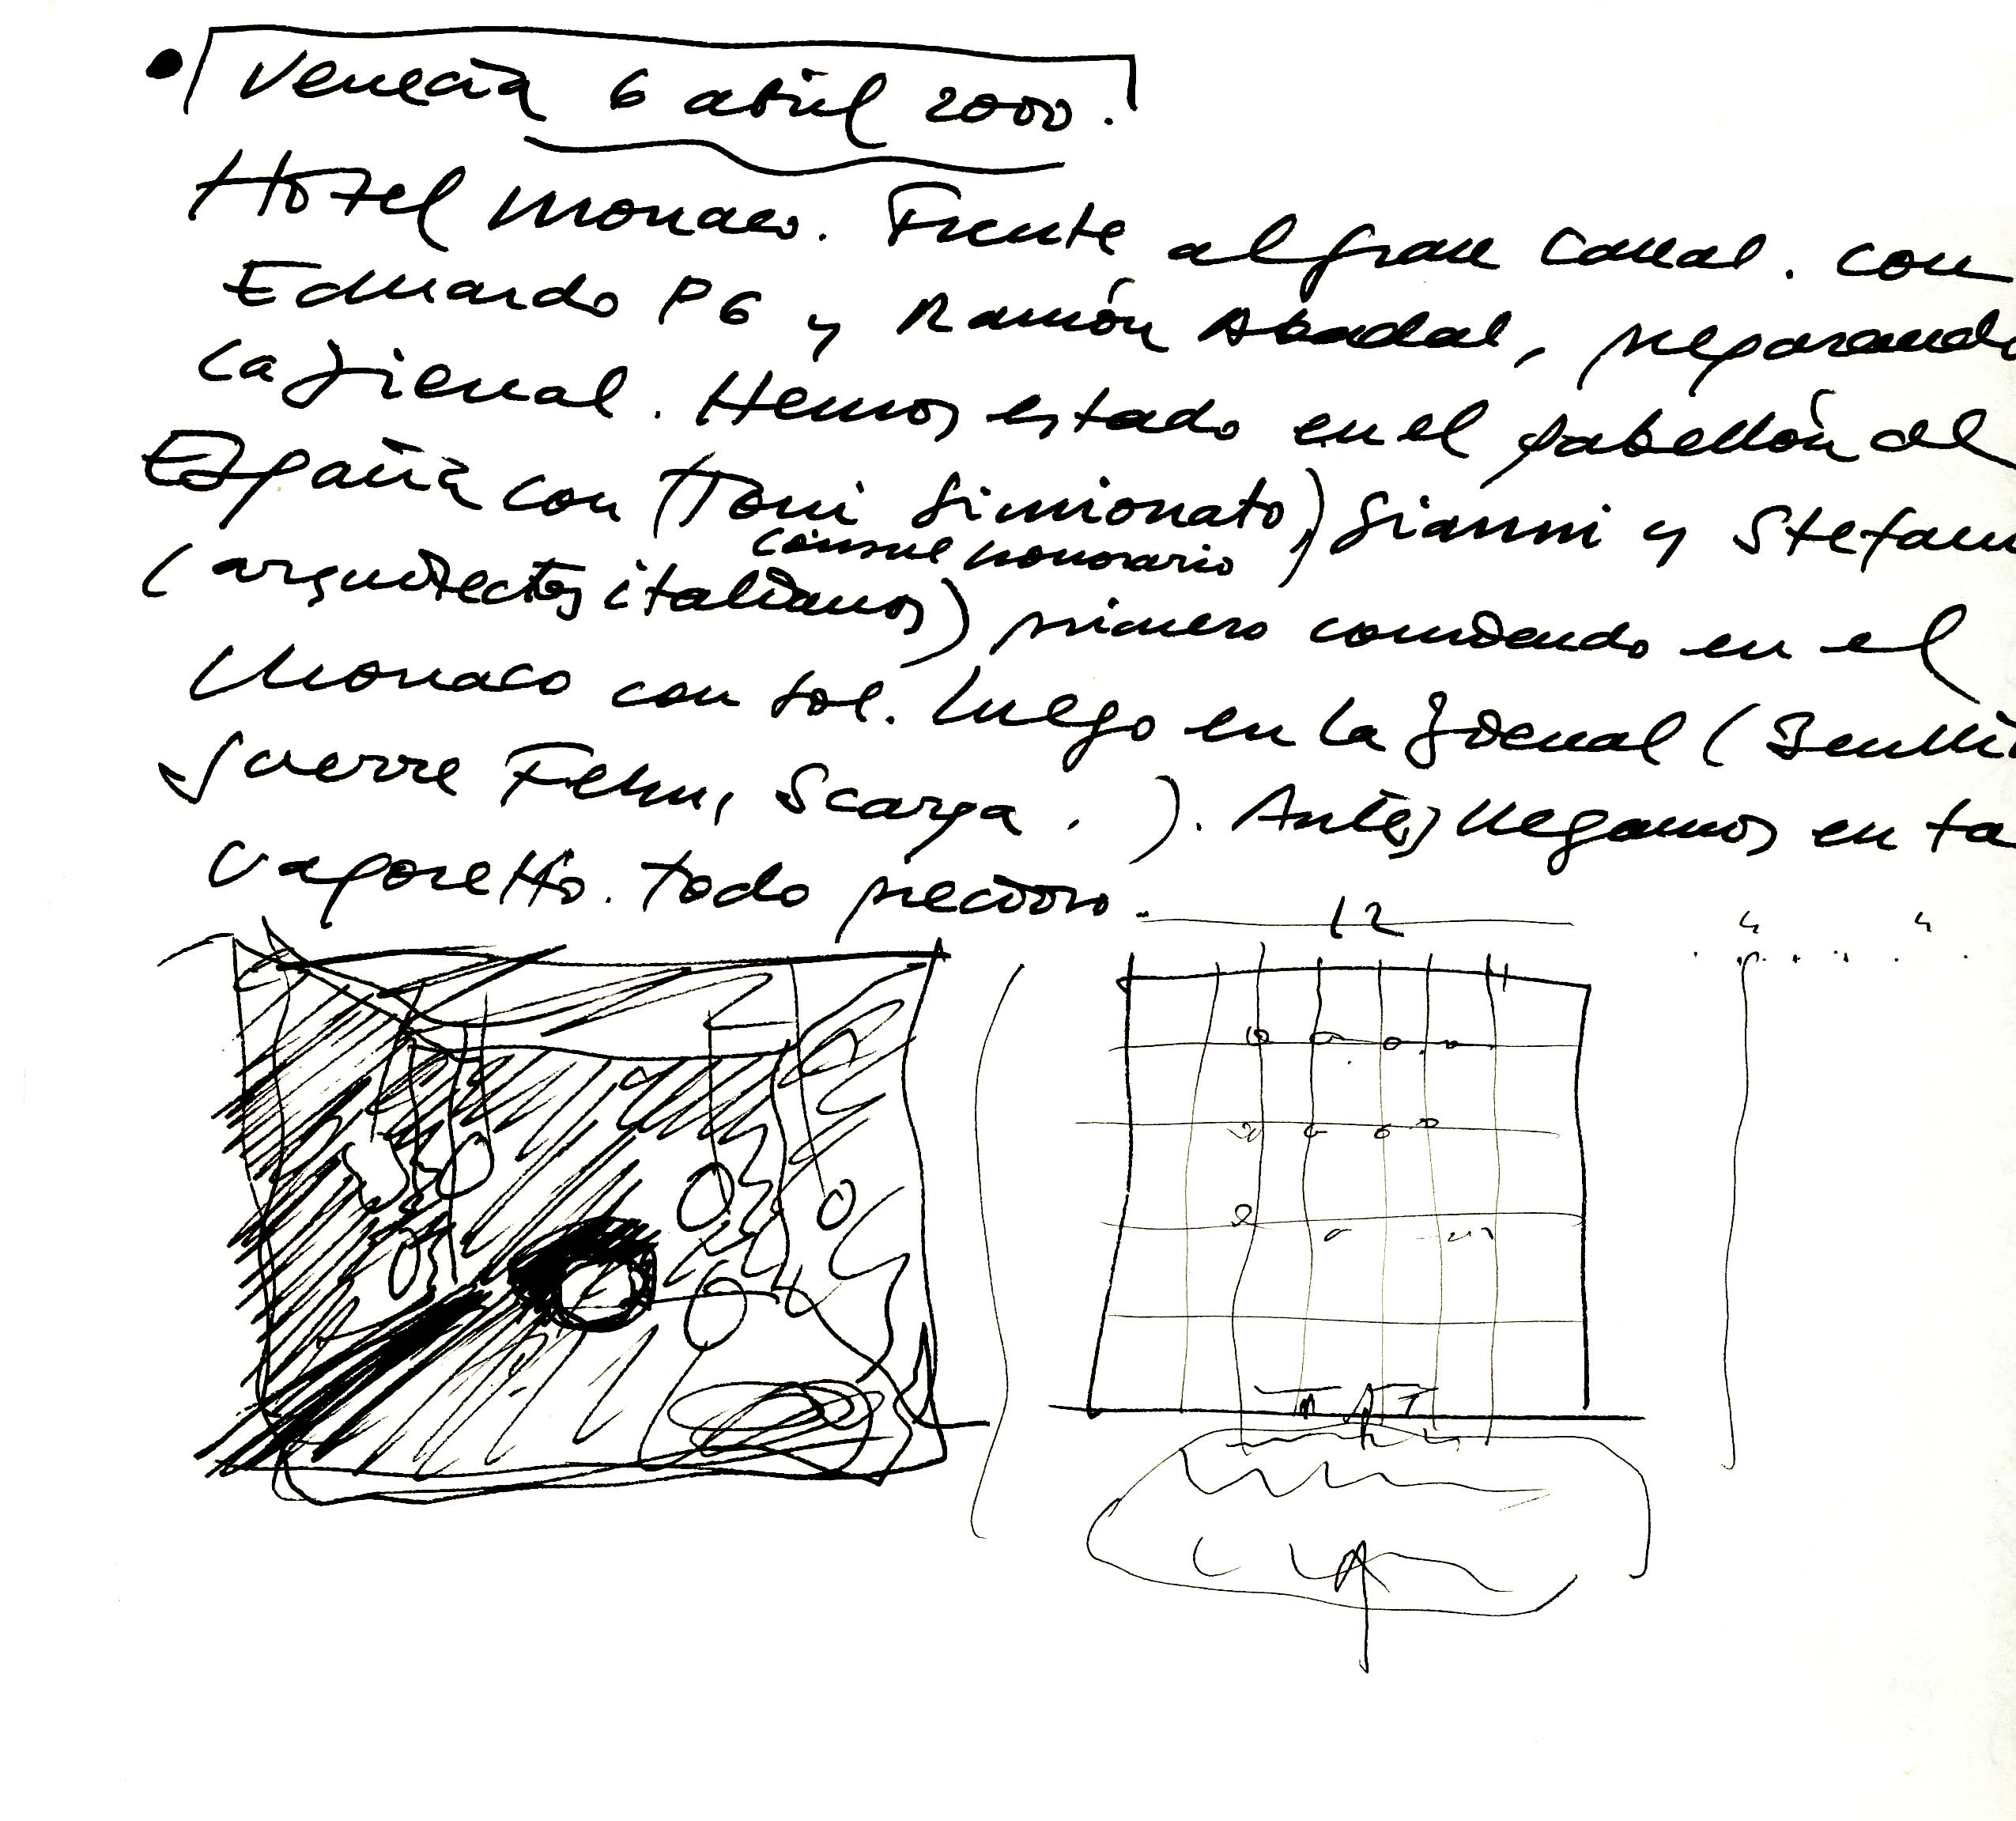 Venecia 6 abril 2000.
Hotel Monaco. Frente al Gran Canal. con
Eduardo PG y Ramón Abadal, preparando
la Bienal. Hemos estado en el pabellón de
España con (Toni Simionato) Gianni y Stefan
consul honorario
(arquitectos italianos) primero comiendo en el
Monaco con sol. Luego en la Bienal (
Sverre Fehn, Scarpa . ). Antes llegamos en ta
vaporetto. todo precioso.
12
4 4